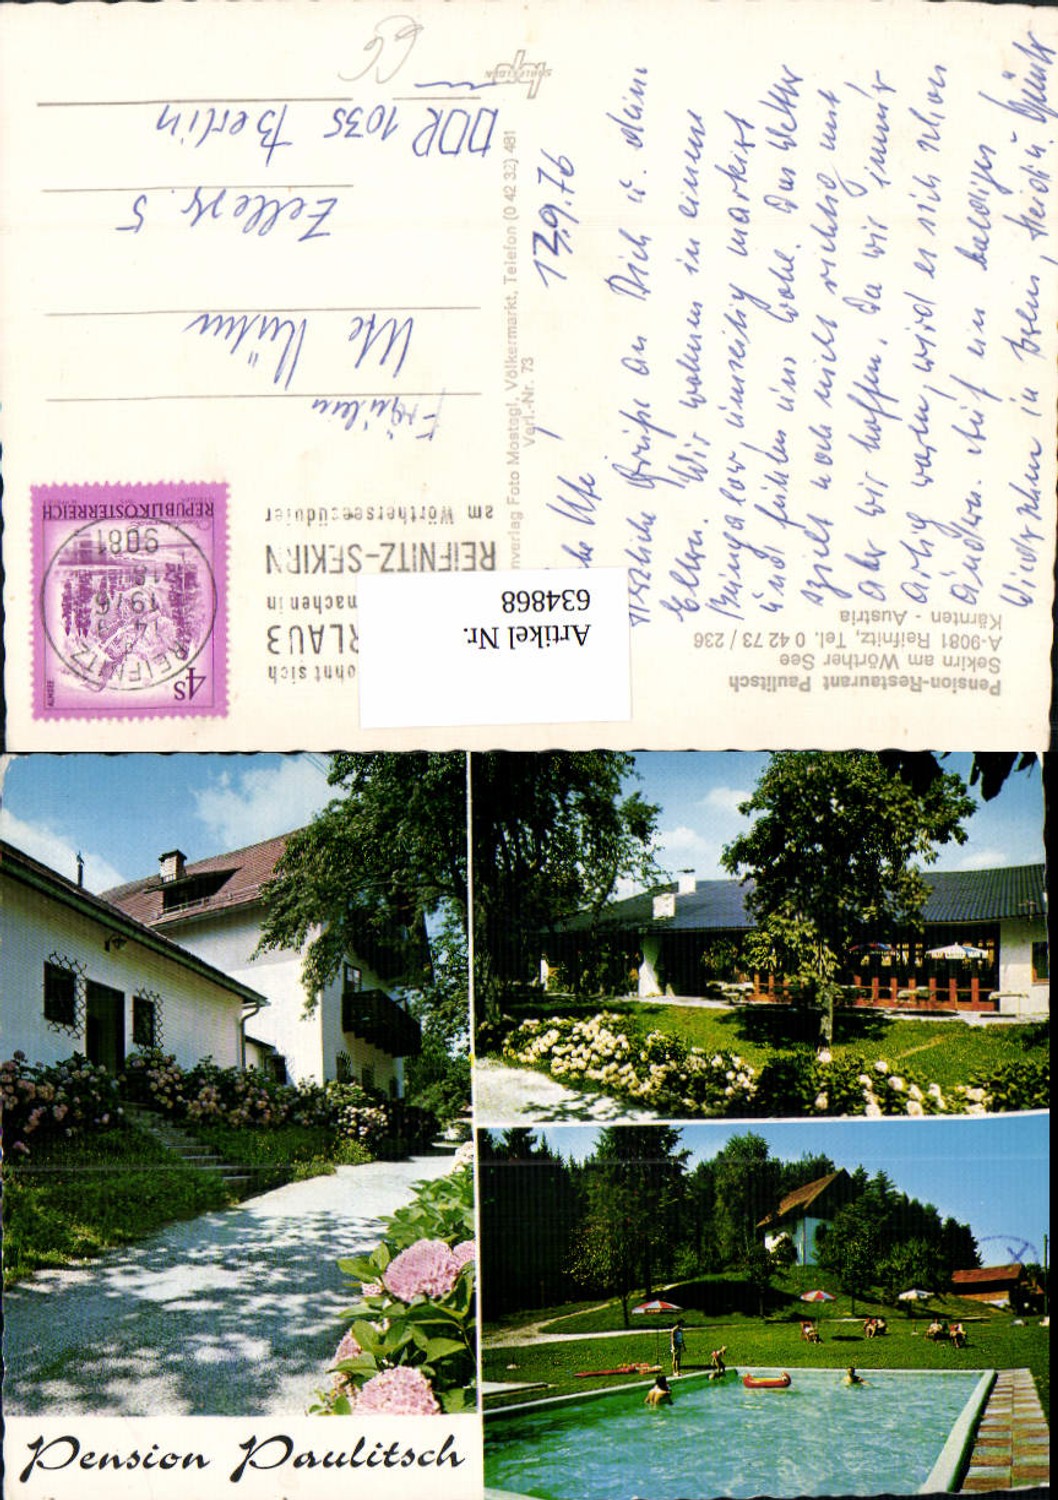 Pension-Restaurant Paulitsch
Sekirn am Wörther See
A-9081 Reifnitz, Tel. 0 42 73 / 236
Kärnten - Austria
13.9.76
Ute!
Herzliche Grüße an Dich u. Deine
Eltern. Wir wohnen in einem
Bungalow
und fühlen uns wohl. Das Wetter
spielt noch nicht richtig mit
aber wir hoffen. Da wir immer
artig waren, wird es sich schon
ändern. Auf ein baldiges
Wiedersehen in Berlin, Heidi u.
Foto Mostegl, Völkermarkt, Telefon (0 42 32) 481
Verl.-Nr. 73
ohnt sich
RLAUB
machen in
REIFNITZ-SEKIRN
am Wörtherseesüdufer
4S
ALMSEE
REPUBLIK ÖSTERREICH
REIFNITZ
1976
9081
Artikel Nr.
634868
Fräulein
Ute
Zellestr. 5
DDR 1035 Berlin
66
Pension Paulitsch